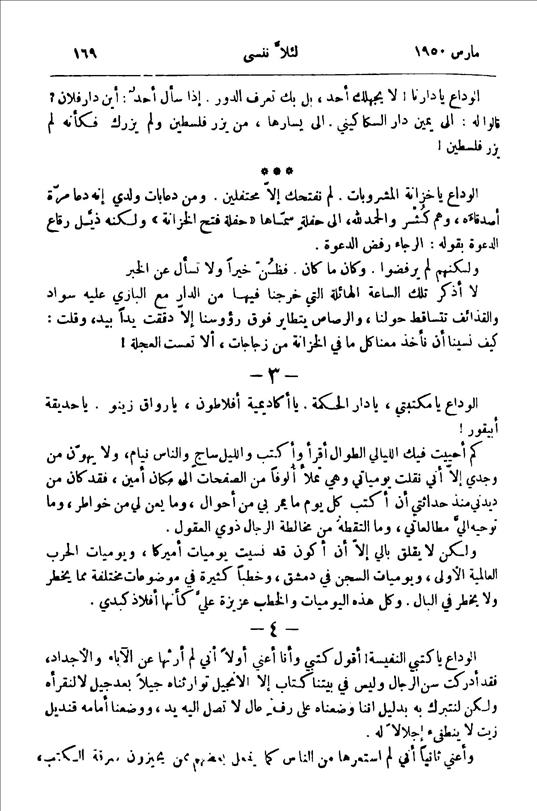 مارس ١٩٥٠ لئلاّ ننسى ١٦٩
الوداع يادارنا ! لا يجهلك أحد ، بل بك تعرف الدور . إذا سأل أحدٌ : أين دار فلان ؟
قالوا له : الى يمين دار السكاكيني . الى يسارها ، من يزر فلسطين ولم يزرك فكأنه لم
يزر فلسطين !
***
الوداع ياخزانة المشروبات . لم نفتحك إلاّ محتفلين . ومن دعابات ولدي إنه دعا مرّة
أصدقاءه ، وهم كُثْر والحمدلله، الى حفلةٍ سمّاها «حفلة فتح الخزانة » ولكنه ذيّل رقاع
الدعوة بقوله : الرجاء رفض الدعوة .
ولكنهم لم يرفضوا . وكان ما كان . فظُنّ خيراً ولا تسأل عن الخبر
لا أذكر تلك الساعة الهائلة التي خرجنا فيها من الدار مع البازي عليه سواد
والقذائف تتساقط حولنا ، والرصاص يتطاير فوق رؤوسنا إلاّ دققت يداً بيد، وقلت :
كيف نسينا أن نأخذ معنا كل ما في الخزانة من زجاجات ، ألا تعست العجلة !
– ٣ –
الوداع يا مكتبتي ، يادار الحكمة . يا أكاديمية أفلاطون ، يا رواق زينو . يا حديقة
أبيقور !
كم أحييت فيك الليالي الطوال أقرأ وأكتب والليل ساج والناس نيام، ولا يهوّن من
وجدي إلاّ أني نقلت يومياتي وهي تملأ ألوفاً من الصفحات الى مكان أمين ، فقد كان من
ديدني منذ حداثتي أن أكتب كل يوم ما يمر بي من أحوال ، وما يعن لي من خواطر ، وما
توحيه اليّ مطالعاتي ، وما التقطهُ من مخالطة الرجال ذوي العقول .
ولكن لا يقلق بالي إلاّ أن أكون قد نسيت يوميات أميركا ، ويوميات الحرب
العالمية الأولى ، ويوميات السجن في دمشق ، وخطباً كثيرة في موضوعات مختلفة مما يخطر
ولا يخطر في البال . وكل هذه اليوميات والخطب عزيزة عليّ كأنها أفلاذ كبدي .
– ٤ –
الوداع يا كتبي النفيسة! أقول كتبي وأنا أعني أولاً أني لم أرثها عن الآباء والأجداد،
فقد أدركت سن الرجال وليس في بيتنا كتاب إلا الانجيل توارثناه جيلاً بعد جيل لا لنقرأه
ولكن لنتبرك به بدليل اننا وضعناه على رف عال لا تصل اليه يد ، ووضعنا أمامه قنديل
زيت لا ينطفىء إجلالاً له .
وأعني ثانياً أني لم استعرها من الناس كما يفعل بعضهم ممن يجيزون سرقة الكتب،